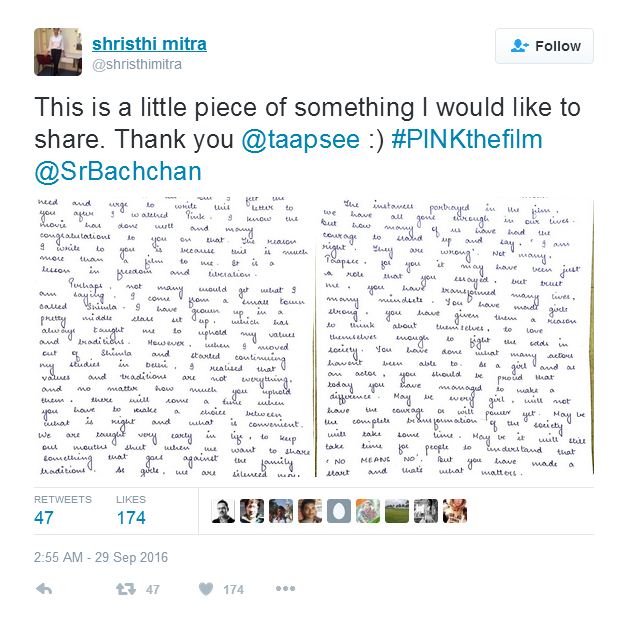 shristhi mitra
@shristhimitra
Follow
This is a little piece of something I would like to
share. Thank you @taapsee :) #PINKthefilm
@SrBachchan
I felt the
need and urge to write this letter to
you after I watched Pink. I know the
movie has done well and many
congratulations to you on that. The reason
I write to you is because this is much
more than a film to me. It is a
lesson in freedom and liberation.
Perhaps, not many would get what I
am saying. I come from a small town
called Shimla. I have grown up in a
pretty middle class set up, which has
always taught me to uphold my values
and traditions. However, when I moved
out of Shimla and started continuing
my studies in Delhi, I realised that
values and traditions are not everything,
and no matter how much you uphold
them. there will come a time when
you have to make a choice between
what is right and what is convenient.
We are taught very early in life, to keep
our mouths shut when we want to share
something that goes against the family
traditions. As girls, we are silenced
The instances portrayed in the film,
we have all gone through in our lives.
But how many of us have had the
courage to stand up and say, 'I am
right. They are wrong'. Not many.
Taapsee, for you it may have been just
a role that you essayed, but trust
me, you have transformed many lives,
many mindsets. You have made girls
strong, you have given them a reason
to think about themselves, to love
themselves enough to fight the odds in
society. You have done what many actors
havent been able to. As a girl and as
an actor, you should be proud that
today you have managed to make a
difference. May be every girl, will not
have the courage or will power yet. May be
the complete transformation of the society
will take some time. May be it will still
take time for people to understand that
'NO MEANS NO'. But you have made a
start and that's what matters.
RETWEETS LIKES
47 174
2:55 AM - 29 Sep 2016
47 174